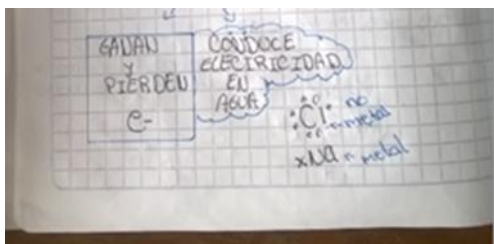 GANAN
y
PIERDEN
e-
CONDUCE
ELECIRICIDAD
EN
AGUA
Cl no
metal
xNa metal